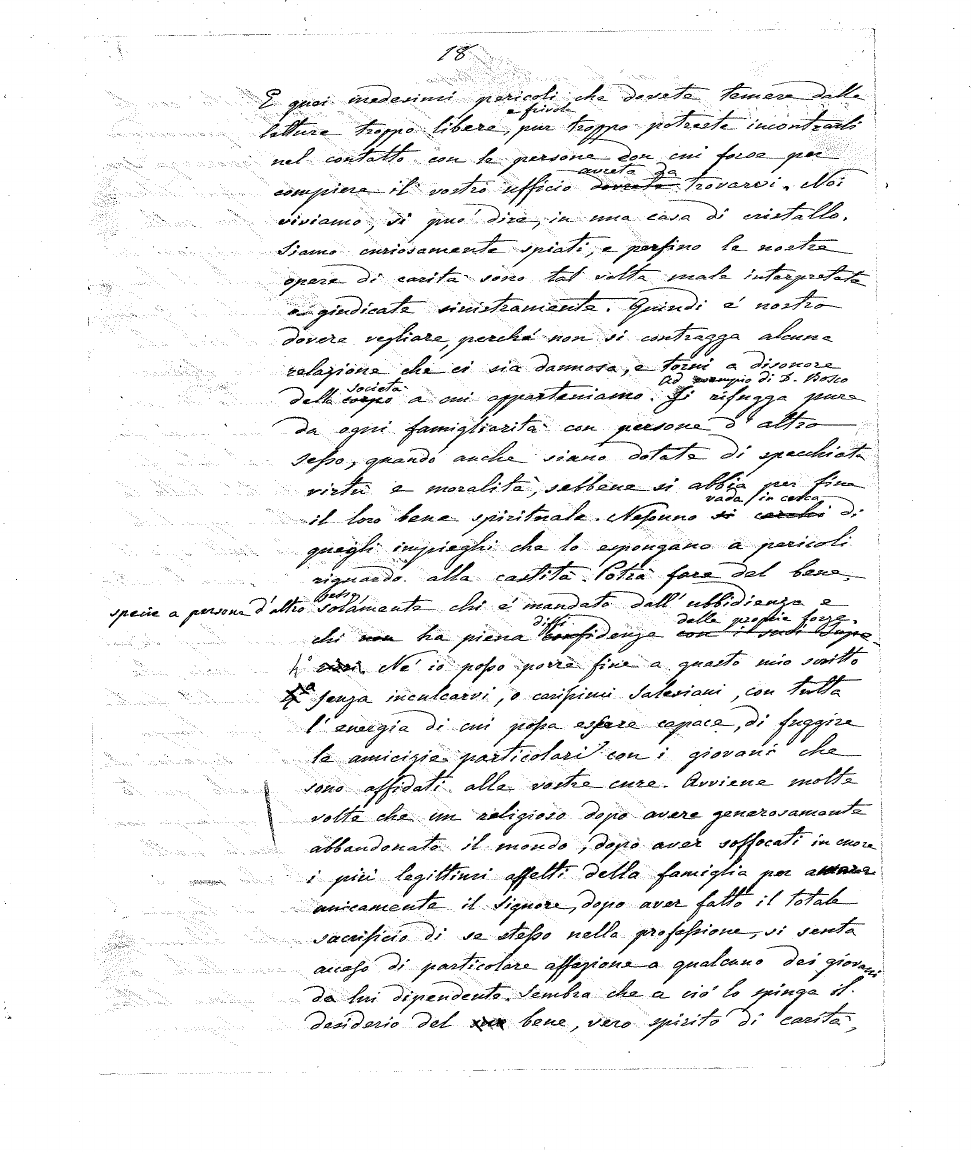 18
E quei medesimi pericoli che dovete temere dalle
e frivole
letture troppo libere, pur troppo potreste incontrarli
nel contatto con le persone con cui forse per
avrete da
compiere il vostro ufficio dovrete trovarvi. Noi
viviamo, si può dire, in una casa di cristallo.
Siamo curiosamente spiati, e perfino le nostre
opere di carità sono tal volta male interpretate
e giudicate sinistramente. Quindi è nostro
dovere vegliare, perché non si contragga alcuna
relazione che ci sia dannosa, e torni a disonore
società
Ad esempio di D. Bosco
della corpo a cui apparteniamo. Si rifugga pure
da ogni famigliarità con persone d'altro
sesso, quando anche siano dotate di specchiata
virtù e moralità, sebbene si abbia per fine
vada in cerca
il loro bene spirituale. Nessuno si cerchi di
quegli impieghi che lo espongano a pericoli
riguardo alla castità. Potrà fare del bene,
specie a persone d'altro sesso,
solamente chi è mandato dall'ubbidienza e
diffi
delle proprie forze.
chi non ha piena confidenza con i suoi Supe-
riori. Né io posso porre fine a questo mio scritto
senza inculcarvi, o carissimi Salesiani, con tutta
l'energia di cui possa essere capace, di fuggire
le amicizie particolari con i giovani che
sono affidati alle vostre cure. Avviene molte
volte che un religioso dopo avere generosamente
abbandonato il mondo, dopo aver soffocati in cuore
i più legittimi affetti della famiglia per amare
unicamente il Signore, dopo aver fatto il totale
sacrificio di se stesso nella professione, si senta
acceso di particolare affezione a qualcuno dei giovani
da lui dipendente. Sembra che a ciò lo spinga il
desiderio del bene, vero spirito di carità,